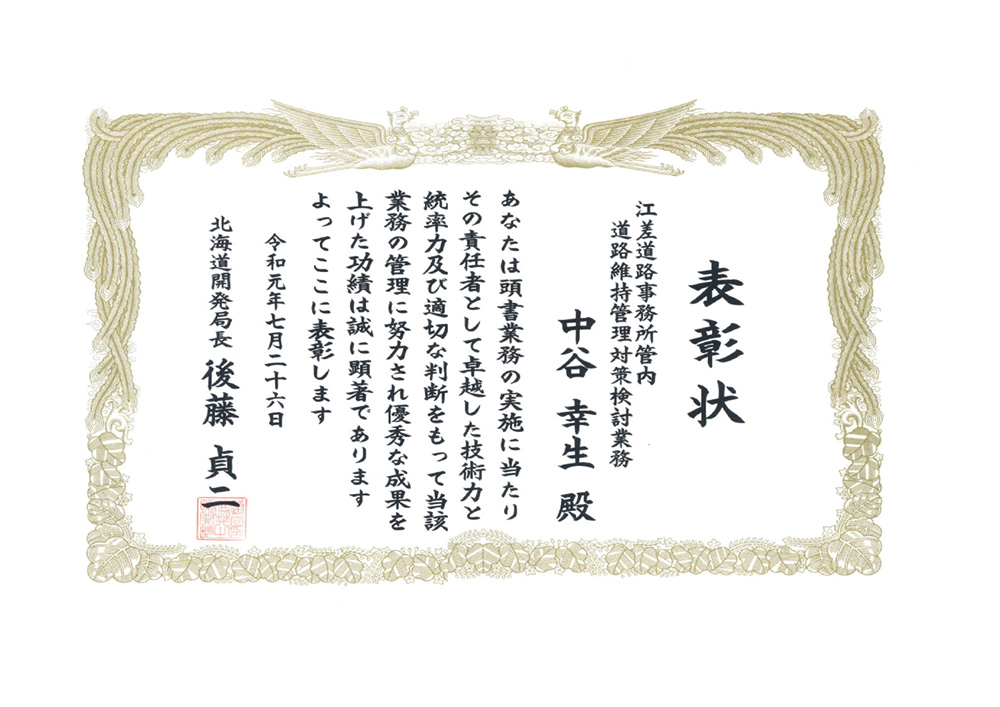 表彰状
江差道路事務所管内
道路維持管理対策検討業務
中谷 幸生 殿
あなたは頭書業務の実施に当たり
その責任者として卓越した技術力と
統率力及び適切な判断をもって当該
業務の管理に努力され優秀な成果を
上げた功績は誠に顕著であります
よってここに表彰します
令和元年七月二十六日
北海道開発局長 後藤 貞二